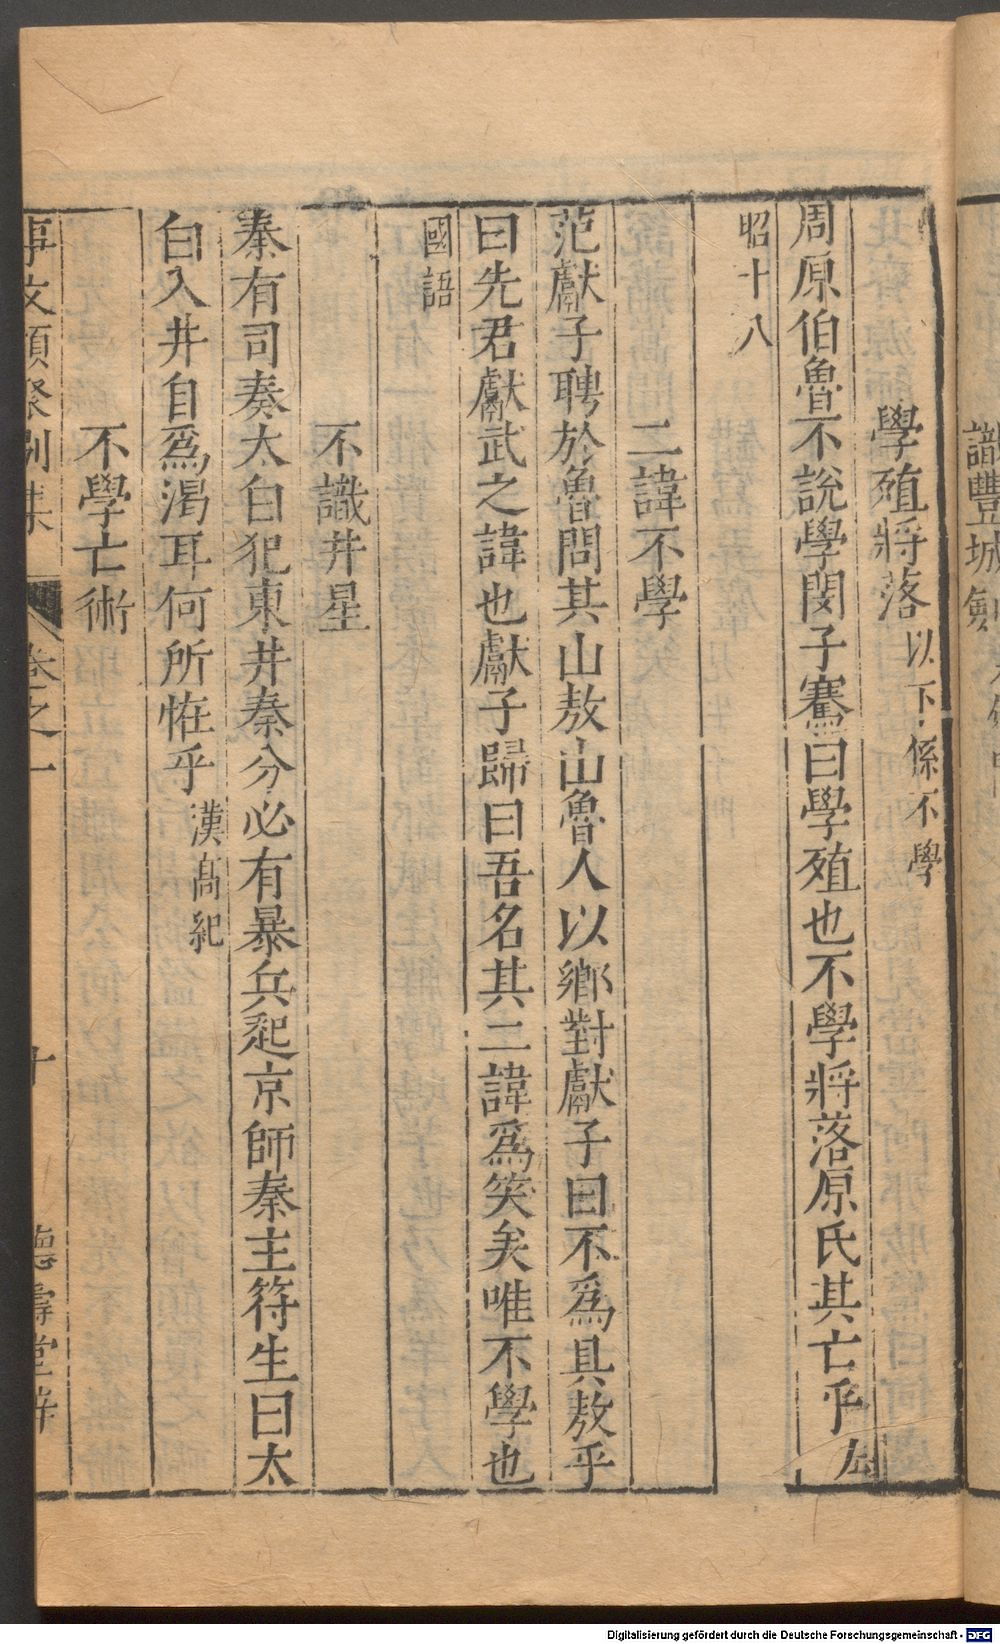 識豐城劍
學殖將落以下係不學
周原伯魯不說學閔子騫曰學殖也不學將落原氏其亡乎左
昭十八
二諱不學
范獻子聘於魯問其山敖山魯人以鄉對獻子曰不爲具敖乎
曰先君獻武之諱也獻子歸曰吾名其二諱爲笑矣唯不學也
國語
不識井星
秦有司奏太白犯東井秦分必有暴兵起京師秦主符生曰太
白入井自爲渴耳何所恠乎漢高紀
不學亡術
事文類聚別集 卷之一 十 德壽堂梓
Digitalisierung gefördert durch die Deutsche Forschungsgemeinschaft - DFG